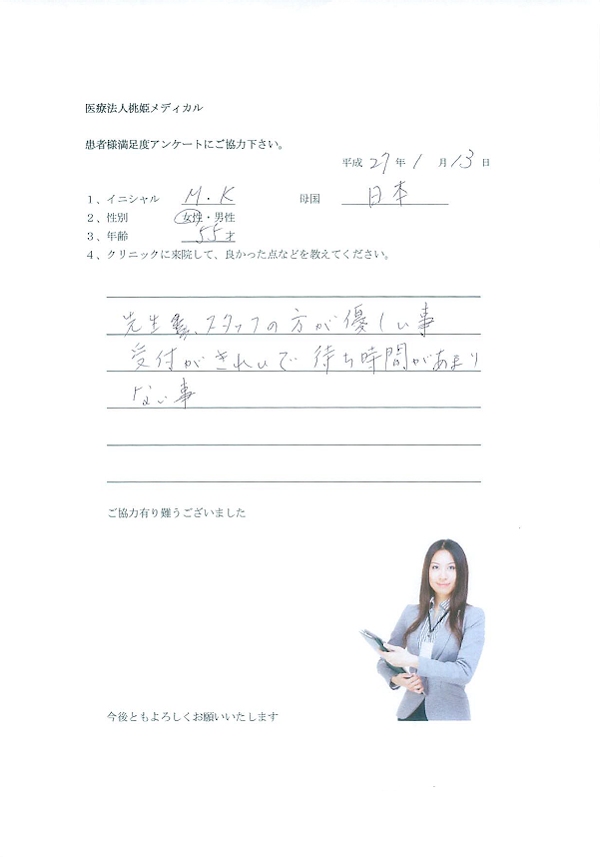 医療法人桃姫メディカル
患者様満足度アンケートにご協力下さい。
平成 27 年 1 月 13 日
1、イニシャル M.K 母国 日本
2、性別 女性・男性
3、年齢 55才
4、クリニックに来院して、良かった点などを教えてください。
先生、スタッフの方が優しい事
受付がきれいで待ち時間があまり
ない事
ご協力有り難うございました
今後ともよろしくお願いいたします